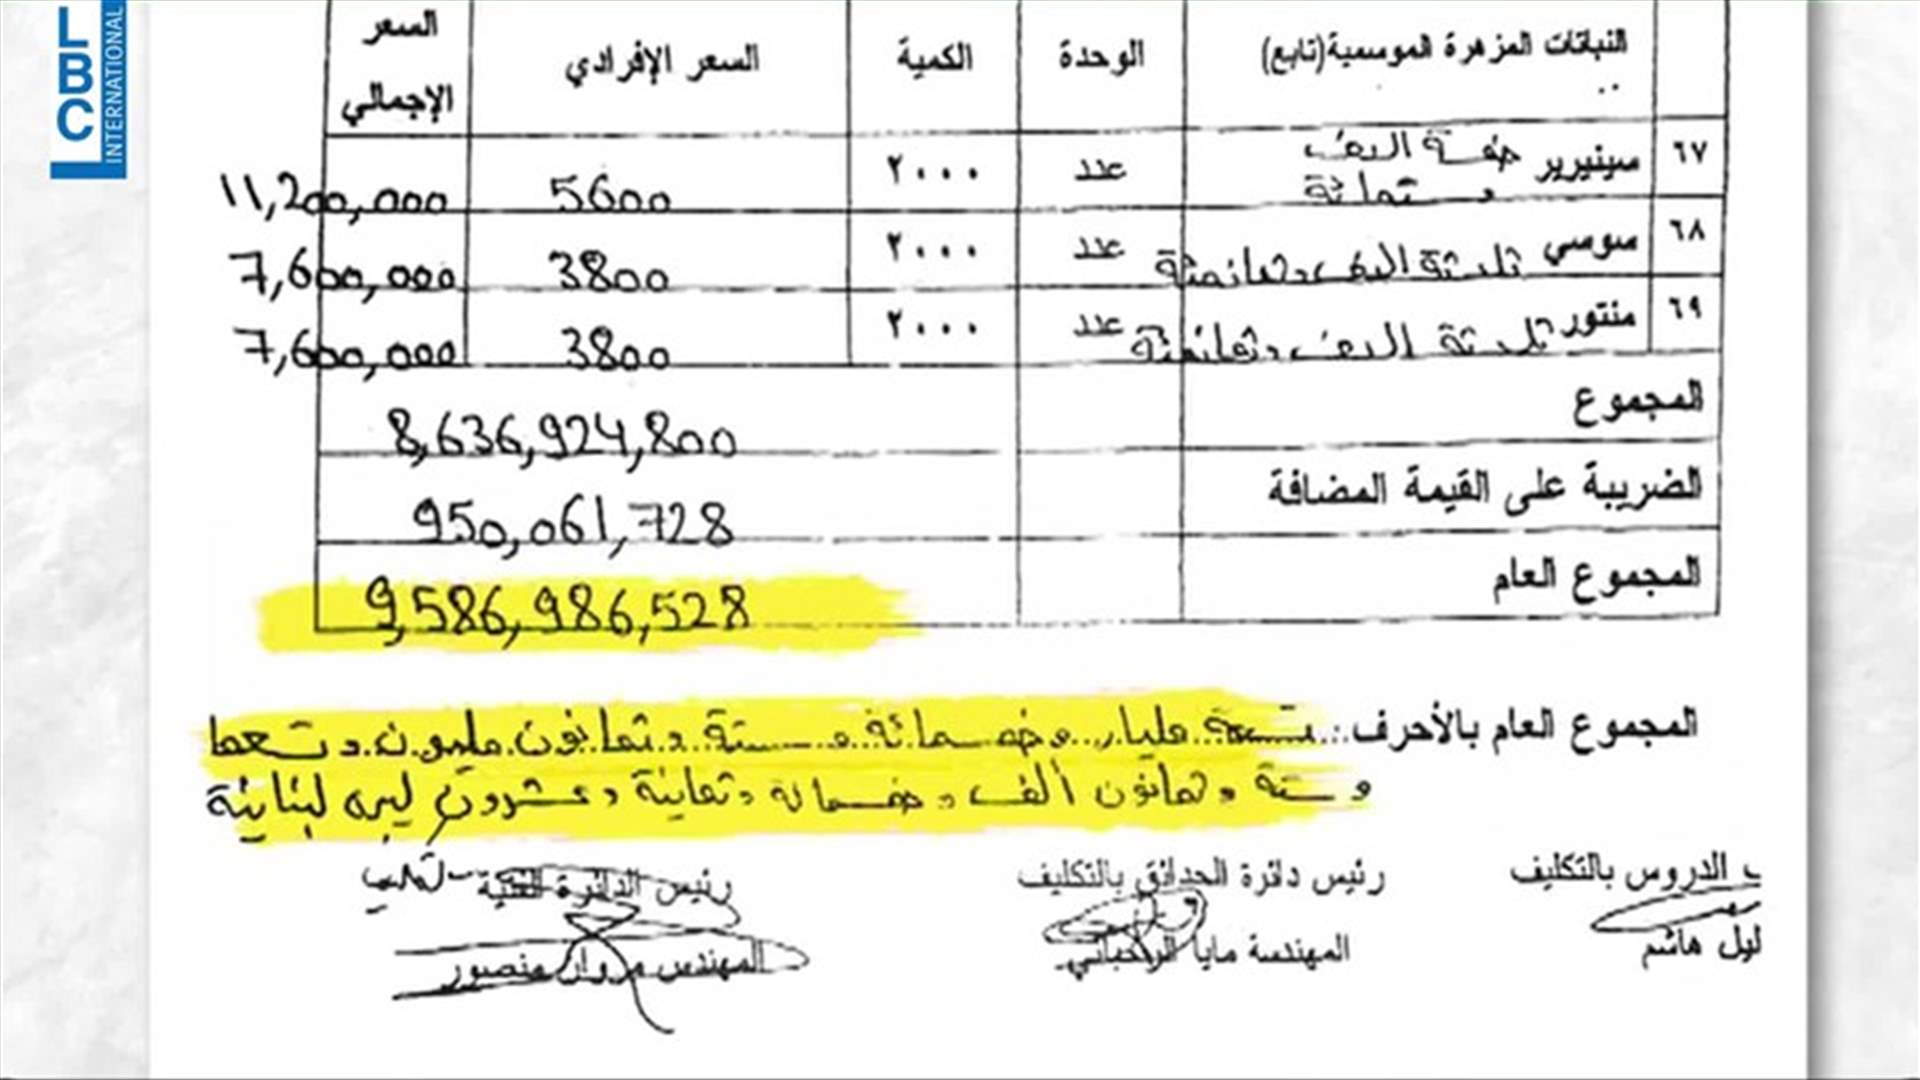 LBC INTERNATIONAL
النباتات المزهرة الموسمية(تابع) الوحدة الكمية السعر الإفرادي السعر الإجمالي
٦٧ سينيرير خمسة الف وستمائة عدد ٢٠٠٠ 5600 11,200,000
٦٨ سوسي ثلاثة الف وثمانمئة عدد ٢٠٠٠ 3800 7,600,000
٦٩ منتور ثلاثة الف وثمانمئة عدد ٢٠٠٠ 3800 7,600,000
المجموع 8,636,924,800
الضريبة على القيمة المضافة 950,061,728
المجموع العام 9,586,986,528
المجموع العام بالأحرف: تسعة مليار وخمسمائة وستة وثمانون مليون وتسعما
وستة وثمانون ألف وخمسمائة وثمانية وعشرون ليره لبنانية
الدروس بالتكليف رئيس دائرة الحدائق بالتكليف رئيس الدائرة الفنية
ليل هاشم المهندسة مايا الرحباني المهندس مروان منصور